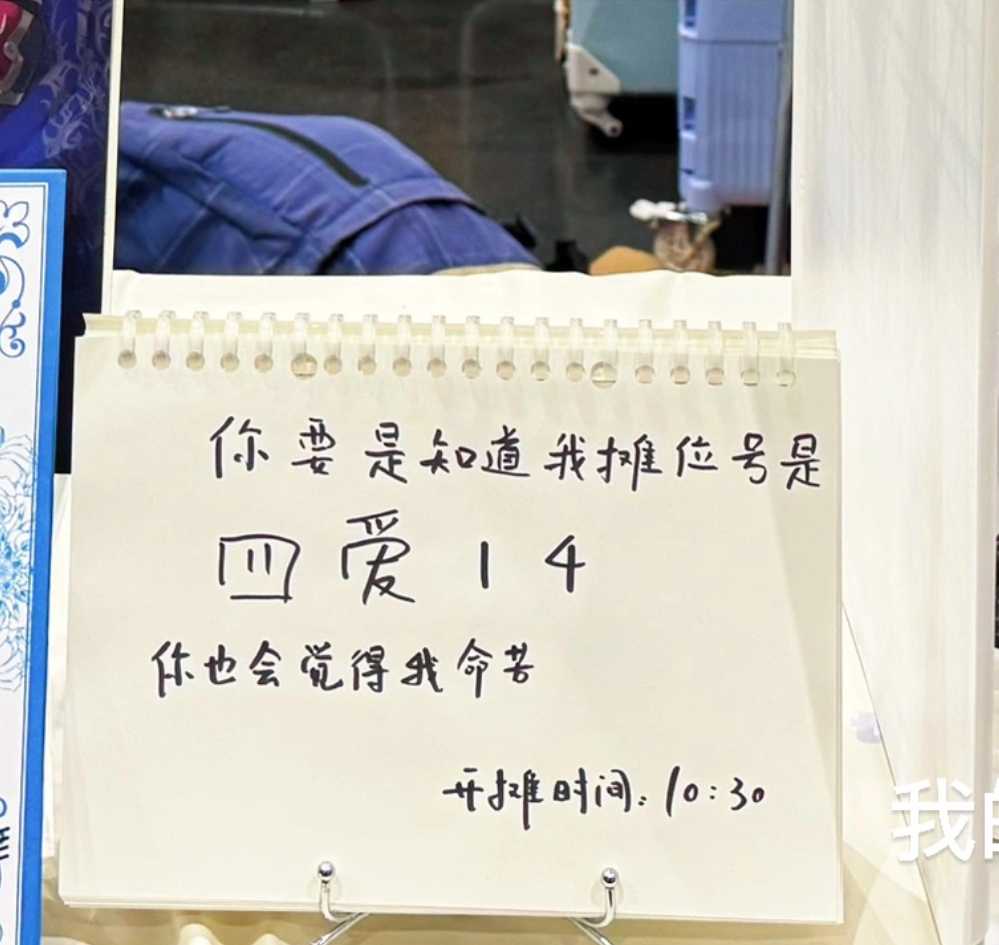 你要是知道我摊位号是
四爱14
你也会觉得我命苦
开摊时间：10:30
我的